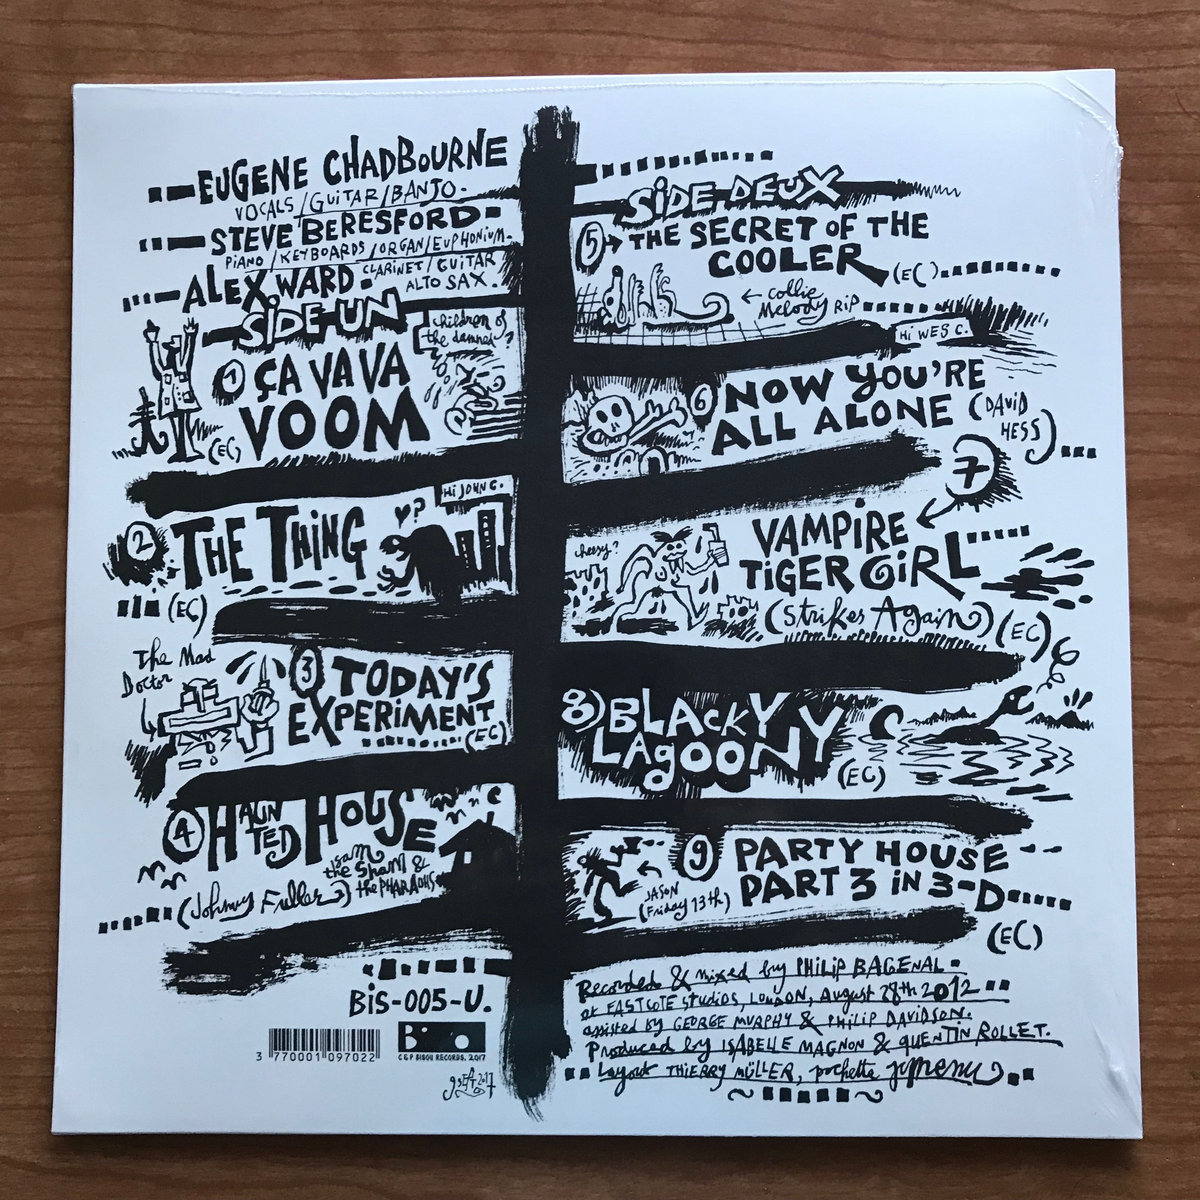 EUGENE CHADBOURNE
VOCALS/GUITAR/BANJO
STEVE BERESFORD
PIANO/KEYBOARDS/ORGAN/EUPHONIUM.
ALEX WARD
CLARINET/GUITAR
ALTO SAX.
SIDE UN
children of
the damned
1 ÇA VA VA
VOOM
(EC)
2 THE THING
♥?
Hi JOHN C.
(EC)
The Mad
Doctor
3 TODAY'S
EXPERIMENT
(EC)
4 HAUNTED HOUSE
(Johnny Fuller)
sam
the Sham &
the PHARAOHS
BiS-005-U.
3 770001 097022
C&P BISOU RECORDS, 2017
SIDE DEUX
5 THE SECRET OF THE
COOLER (EC)
collie
Melody RIP
Hi WES C.
6 NOW YOU'RE
ALL ALONE (DAVID
HESS)
7
VAMPIRE
TIGER GIRL
(Strikes Again) (EC)
cheesy?
8 BLACKY
LAGOONY
(EC)
9 PARTY HOUSE
PART 3 iN 3-D
(EC)
JASON
(Friday 13th)
Recorded & mixed by PHILIP BAGENAL
at EASTCOTE STUDIOS, LONDON, August 28th 2012
assisted by GEORGE MURPHY & PHILIP DAVIDSON.
Produced by ISABELLE MAGNON & QUENTIN ROLLET.
Layout THIERRY MÜLLER, pochette